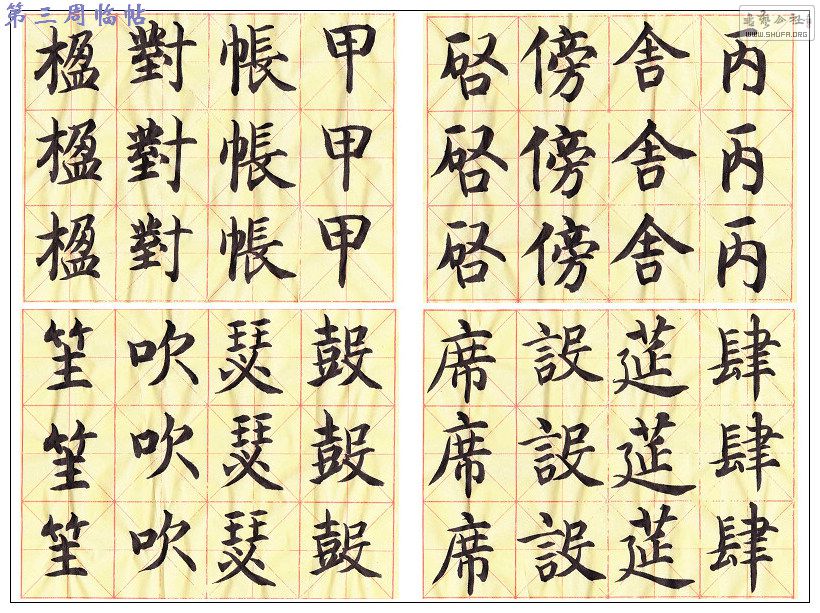 第三周临帖
書藝公社
WWW.SHUFA.ORG
丙丙丙
舍舍舍
傍傍傍
啓啓啓
甲甲甲
帳帳帳
對對對
楹楹楹
肆肆肆
莚莚莚
設設設
席席席
鼓鼓鼓
瑟瑟瑟
吹吹吹
笙笙笙